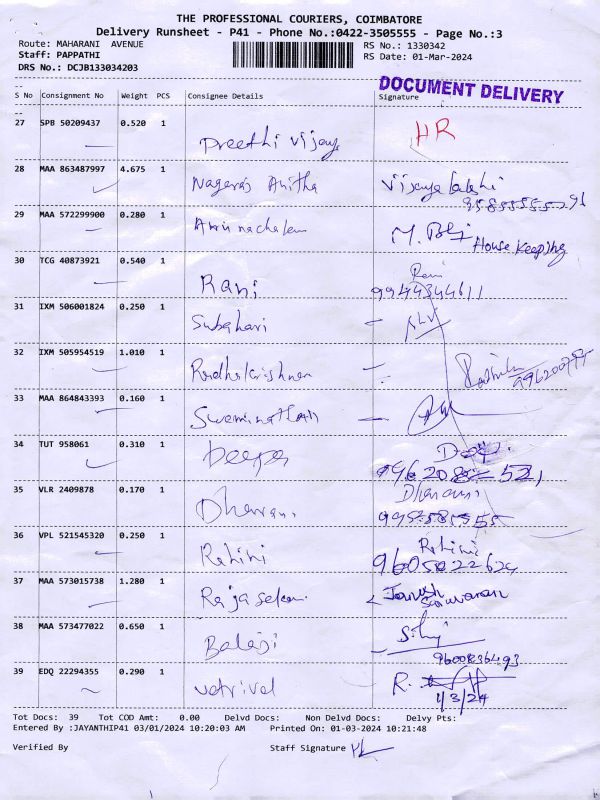 THE PROFESSIONAL COURIERS, COIMBATORE
Delivery Runsheet - P41 - Phone No.:0422-3505555 - Page No.:3
Route: MAHARANI AVENUE RS No.: 1330342
Staff: PAPPATHI RS Date: 01-Mar-2024
DRS No.: DCJB133034203
DOCUMENT DELIVERY
S No Consignment No Weight PCS Consignee Details Signature
27 SPB 50209437 0.520 1 HR
Preethi Vijay
28 MAA 863487997 4.675 1
Nagaraj Anitha
29 MAA 572299900 0.280 1
Arunachalam House keeping
30 TCG 40873921 0.540 1 Rani
Rani 9944344611
31 IXM 506001824 0.250 1
Subahari
32 IXM 505954519 1.010 1
Radhakrishnan
33 MAA 864843393 0.160 1
Swaminathan
34 TUT 958061 0.310 1
Deepa
35 VLR 2409878 0.170 1 Dharani
Dharani
36 VPL 521545320 0.250 1 Rohini
Rohini 9605022624
37 MAA 573015738 1.280 1
Rajasekar
38 MAA 573477022 0.650 1
Balaji
39 EDQ 22294355 0.290 1 R.
Vetrivel 1/3/24
Tot Docs: 39 Tot COD Amt: 0.00 Delvd Docs: Non Delvd Docs: Delvy Pts:
Entered By :JAYANTHIP41 03/01/2024 10:20:03 AM Printed On: 01-03-2024 10:21:48
Verified By Staff Signature